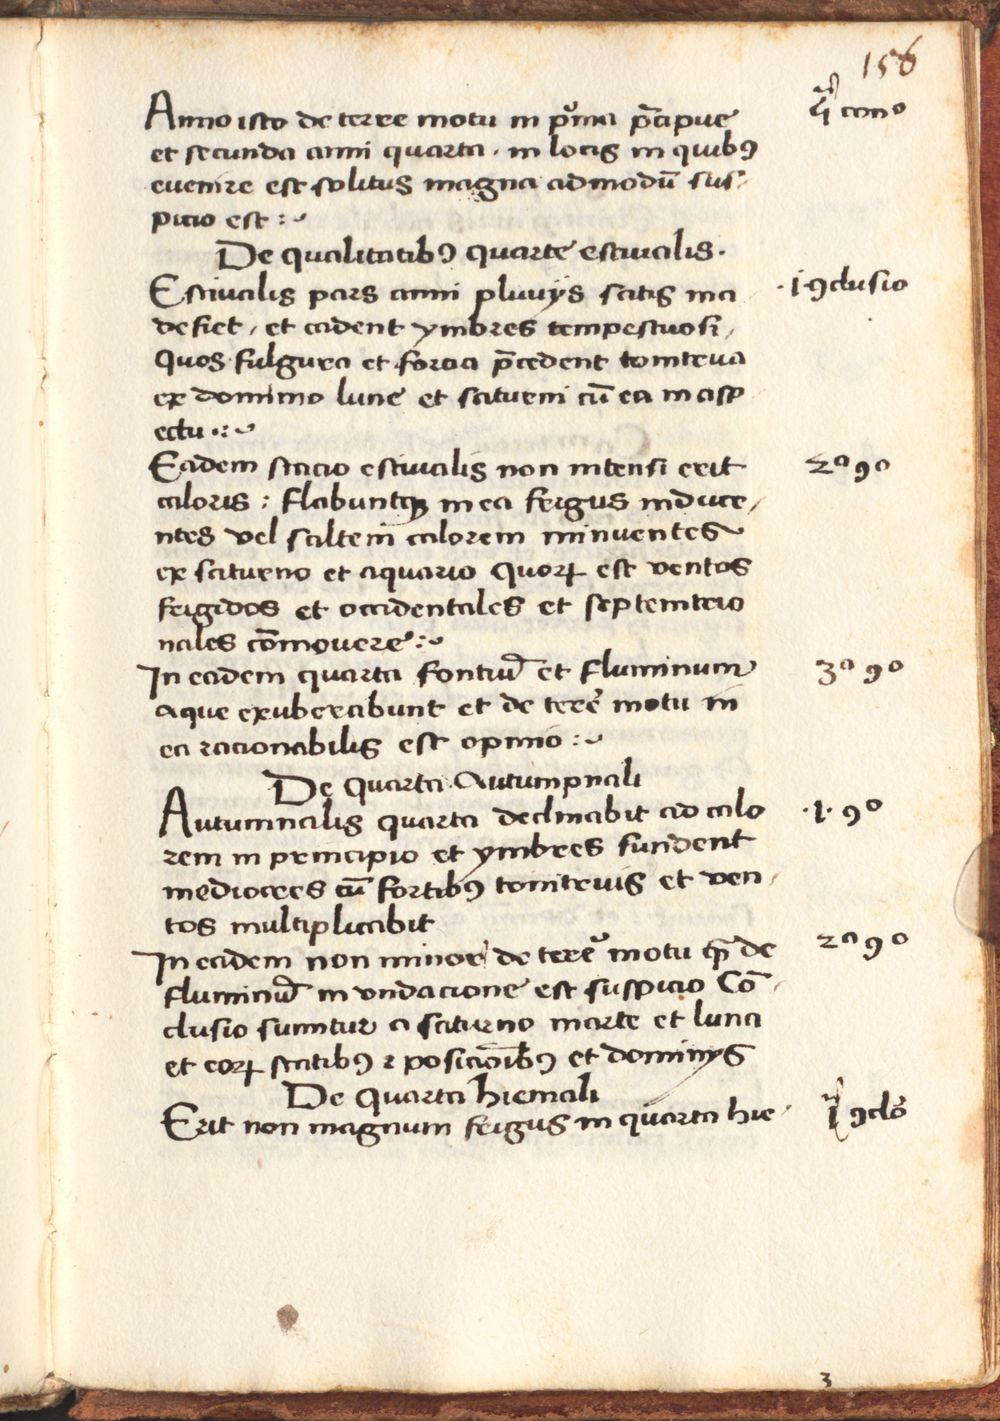 156
Anno isto de terre motu in pͥma p̄cipue
et secunda anni quarta . in locis in quibꝰ
evenire est solitus magna admodū sus-
picio est :~
De qualitatibꝰ quarte estivalis .
Estivalis pars anni pluvijs satis ma
.1. ꝯclusio
defiet , et cadent ymbres tempestuosi ,
Quos fulgura et forcia p̄cedent tonitrua
ex dominio lune et saturni cū ea in asp
ectu .:~
Eadem stacio estivalis non intensi erit
2ᵃ ꝯᵒ
caloris : flabuntqꝫ in ea frigus induce-
ntes vel saltem calorem minuentes
ex saturno et aquario Quoꝝ est ventos
frigidos et occidentales et septemtrio
nales cōmovere :~
In eadem quarta fontiū et fluminum
3ᵃ ꝯᵒ
aque exuberabunt et de terre motu in
ea racionabilis est opinio :~
De Quarta Autumpnali
Autumnalis quarta declinabit ad calo
.1. ꝯᵒ
rem in principio et ymbres fundent
mediocres cū fortibꝰ tonitruis et ven-
tos multiplicabit
In eadem non minor de terre motu qͣ de
2ᵃ ꝯᵒ
fluminū inundacione est suspicio Cō-
clusio sumitur a saturno marte et luna
et eoꝝ statibꝰ ⁊ posicionibꝰ et dominijs
De Quarta hiemali
Erit non magnum frigus in quarta hie-
3